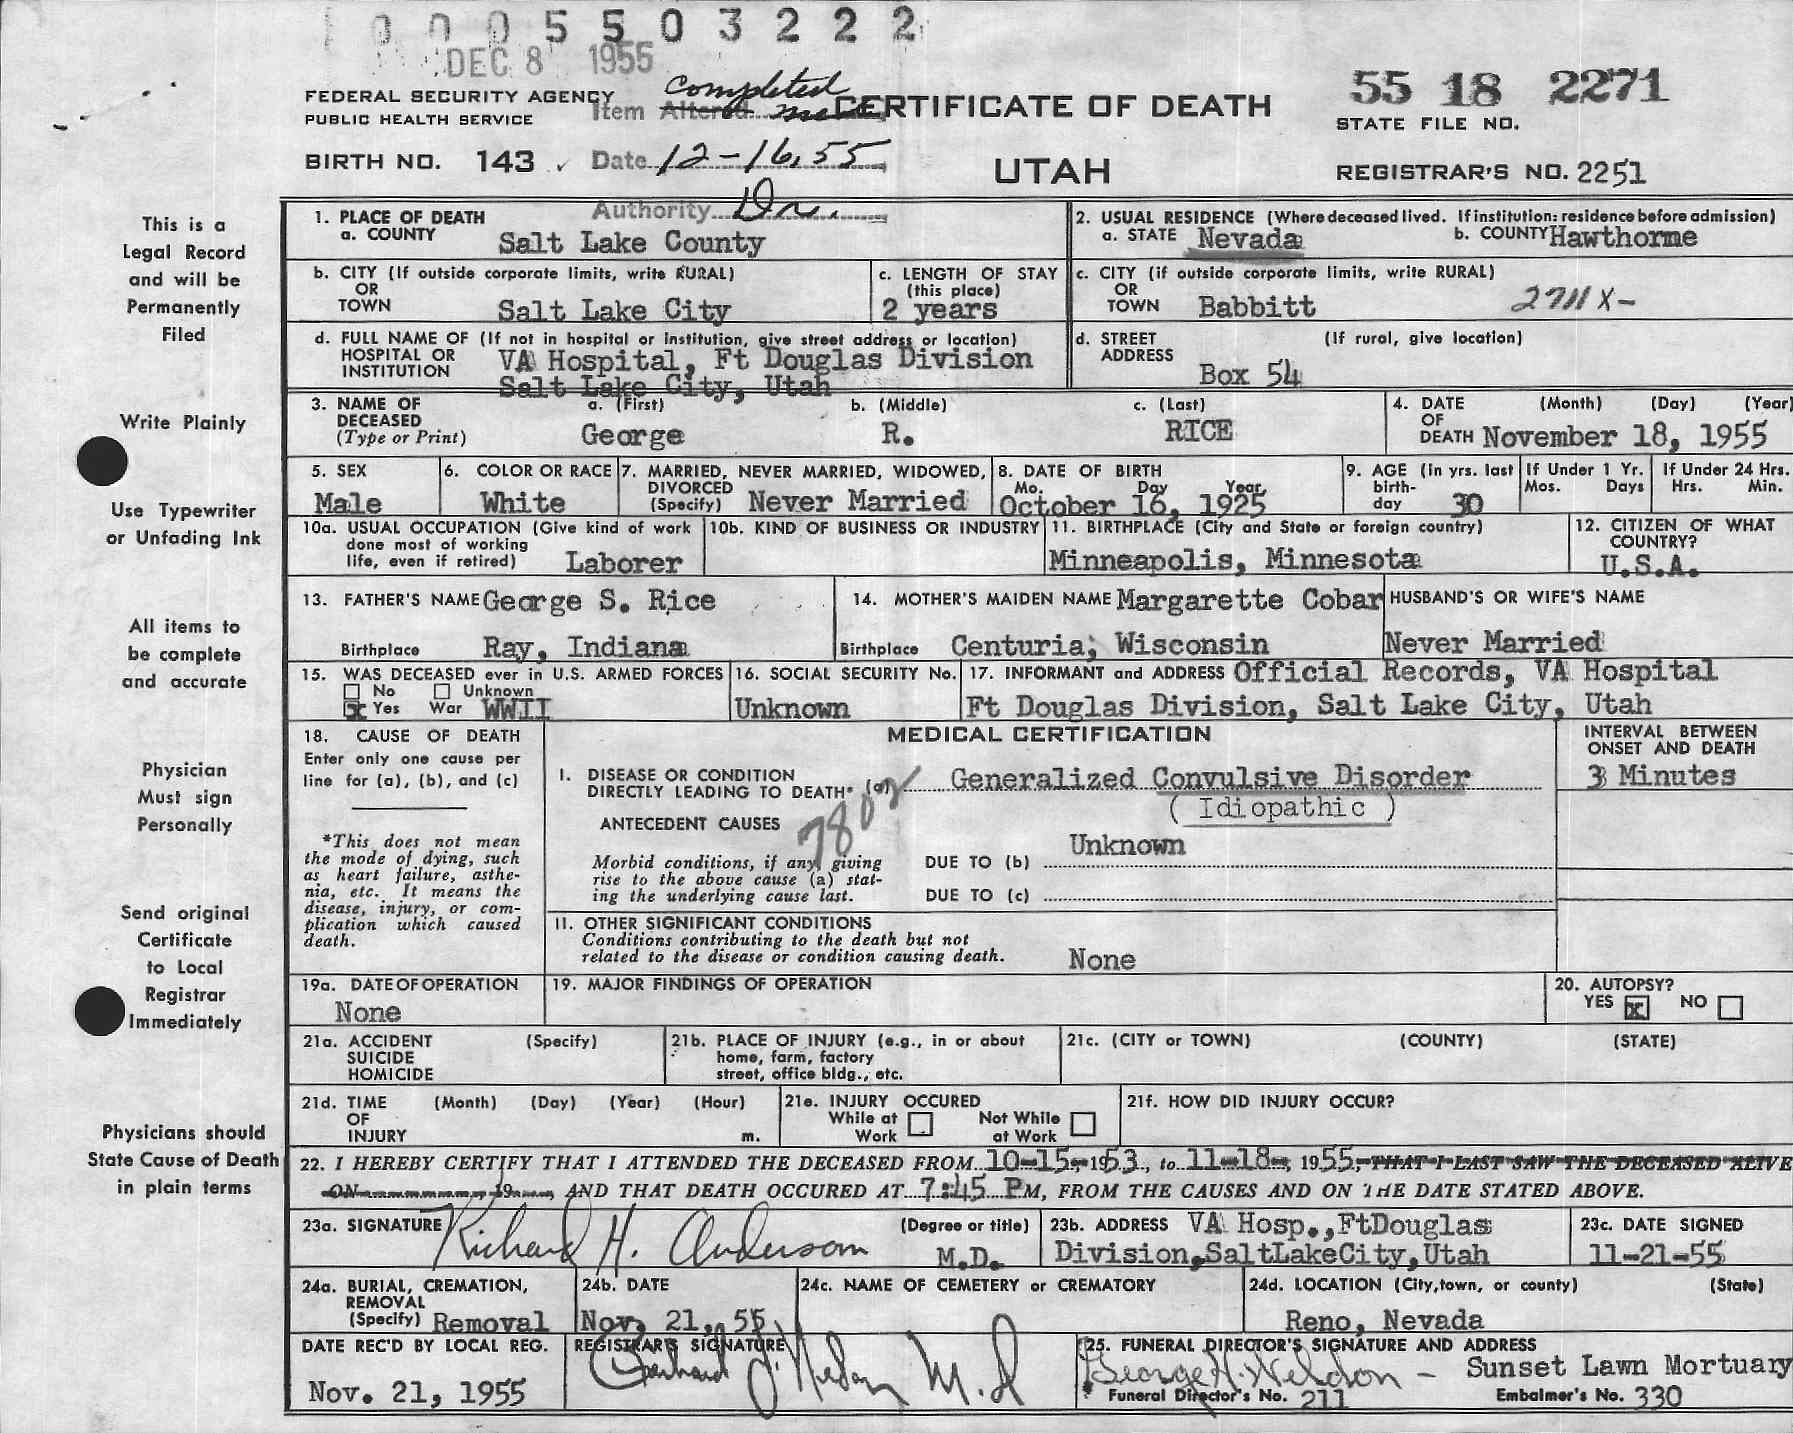 0 0 0 5 5 0 3 2 2 2
DEC 8 1955
FEDERAL SECURITY AGENCY
PUBLIC HEALTH SERVICE
Item Altered Completed
CERTIFICATE OF DEATH
55 18 2271
STATE FILE NO.
BIRTH NO. 143
Date 12-16,55
UTAH
REGISTRAR'S NO. 2251
Authority Dr.
This is a
Legal Record
and will be
Permanently
Filed
Write Plainly
Use Typewriter
or Unfading Ink
All items to
be complete
and accurate
Physician
Must sign
Personally
Send original
Certificate
to Local
Registrar
Immediately
Physicians should
State Cause of Death
in plain terms
1. PLACE OF DEATH
a. COUNTY Salt Lake County
2. USUAL RESIDENCE (Where deceased lived. If institution: residence before admission)
a. STATE Nevada b. COUNTY Hawthorne
b. CITY (If outside corporate limits, write RURAL)
OR
TOWN Salt Lake City
c. LENGTH OF STAY
(this place)
2 years
c. CITY (if outside corporate limits, write RURAL)
OR
TOWN Babbitt 2711 X-
d. FULL NAME OF (If not in hospital or institution, give street address or location)
HOSPITAL OR
INSTITUTION VA Hospital, Ft Douglas Division
Salt Lake City, Utah
d. STREET
ADDRESS (If rural, give location)
Box 54
3. NAME OF
DECEASED
(Type or Print)
a. (First) b. (Middle) c. (Last)
George R. RICE
4. DATE (Month) (Day) (Year)
OF
DEATH November 18, 1955
5. SEX
Male
6. COLOR OR RACE
White
7. MARRIED, NEVER MARRIED, WIDOWED,
DIVORCED
(Specify) Never Married
8. DATE OF BIRTH
Mo. Day Year
October 16, 1925
9. AGE (in yrs. last
birth-
day 30
If Under 1 Yr.
Mos. Days
If Under 24 Hrs.
Hrs. Min.
10a. USUAL OCCUPATION (Give kind of work
done most of working
life, even if retired) Laborer
10b. KIND OF BUSINESS OR INDUSTRY
11. BIRTHPLACE (City and State or foreign country)
Minneapolis, Minnesota
12. CITIZEN OF WHAT
COUNTRY?
U.S.A.
13. FATHER'S NAME George S. Rice
Birthplace Ray, Indiana
14. MOTHER'S MAIDEN NAME Margarette Cobar
Birthplace Centuria, Wisconsin
HUSBAND'S OR WIFE'S NAME
Never Married
15. WAS DECEASED ever in U.S. ARMED FORCES
No Unknown
x Yes War WWII
16. SOCIAL SECURITY No.
Unknown
17. INFORMANT and ADDRESS Official Records, VA Hospital
Ft Douglas Division, Salt Lake City, Utah
18. CAUSE OF DEATH
Enter only one cause per
line for (a), (b), and (c)
*This does not mean
the mode of dying, such
as heart failure, asthe-
nia, etc. It means the
disease, injury, or com-
plication which caused
death.
MEDICAL CERTIFICATION
INTERVAL BETWEEN
ONSET AND DEATH
I. DISEASE OR CONDITION
DIRECTLY LEADING TO DEATH* (a) Generalized Convulsive Disorder
3 Minutes
( Idiopathic )
ANTECEDENT CAUSES
Morbid conditions, if any, giving
rise to the above cause (a) stat-
ing the underlying cause last.
DUE TO (b) Unknown
DUE TO (c)
II. OTHER SIGNIFICANT CONDITIONS
Conditions contributing to the death but not
related to the disease or condition causing death. None
19a. DATE OF OPERATION
None
19. MAJOR FINDINGS OF OPERATION
20. AUTOPSY?
YES x NO
21a. ACCIDENT (Specify)
SUICIDE
HOMICIDE
21b. PLACE OF INJURY (e.g., in or about
home, farm, factory
street, office bldg., etc.
21c. (CITY or TOWN) (COUNTY) (STATE)
21d. TIME (Month) (Day) (Year) (Hour)
OF
INJURY m.
21e. INJURY OCCURED
While at Work Not While at Work
21f. HOW DID INJURY OCCUR?
22. I HEREBY CERTIFY THAT I ATTENDED THE DECEASED FROM 10-15-1953, to 11-18-, 1955, THAT I LAST SAW THE DECEASED ALIVE
ON 19 , AND THAT DEATH OCCURED AT 7:45 PM, FROM THE CAUSES AND ON THE DATE STATED ABOVE.
23a. SIGNATURE Richard H. Anderson
(Degree or title)
M.D.
23b. ADDRESS VA Hosp.,FtDouglas
Division,SaltLakeCity,Utah
23c. DATE SIGNED
11-21-55
24a. BURIAL, CREMATION,
REMOVAL
(Specify) Removal
24b. DATE
Nov. 21, 55
24c. NAME OF CEMETERY or CREMATORY
24d. LOCATION (City,town, or county) (State)
Reno, Nevada
DATE REC'D BY LOCAL REG.
Nov. 21, 1955
REGISTRAR'S SIGNATURE
M.D
25. FUNERAL DIRECTOR'S SIGNATURE AND ADDRESS
George H. Nelson - Sunset Lawn Mortuary
Funeral Director's No. 211 Embalmer's No. 330